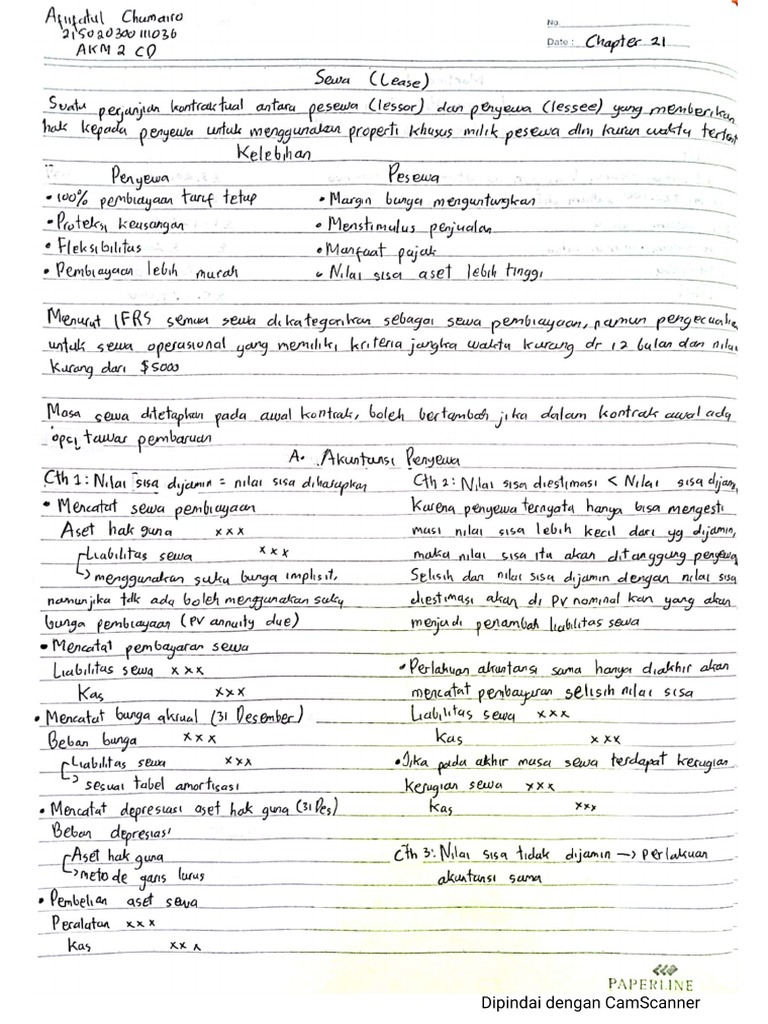 Afufatul Chumairo
215020300111036
AKM 2 CD
No.
Date: Chapter 21
Sewa (Lease)
Suatu perjanjian kontraktual antara pesewa (lessor) dan penyewa (lessee) yang memberikan
hak kepada penyewa untuk menggunakan properti khusus milik pesewa dlm kurun waktu
Kelebihan
Penyewa
• 100% pembiayaan tarif tetup
• Proteksi keusangan
• Fleksibilitas
• Pembiayaan lebih murah
Pesewa
• Margin bunga menguntungkan
• Menstimulus penjualan
• Manfaat pajak
• Nilai sisa aset lebih tinggi
Menurut IFRS semua sewa dikategorikan sebagai sewa pembiayaan, namun
untuk sewa operasional yang memiliki kriteria jangka waktu kurang dr 12 bulan dan nilai
kurang dari $5000
Masa sewa ditetapkan pada awal kontrak, boleh bertambah jika dalam kontrak awal ada
opsi tawar pembaruan
A. Akuntansi Penyewa
Cth 1: Nilai sisa dijamin = nilai sisa diharapkan
• Mencatat sewa pembiayaan
Aset hak guna xxx
Liabilitas sewa xxx
↳ menggunakan suku bunga implisit,
namun jika tdk ada boleh menggunakan suku
bunga pembiayaan (PV annuity due)
• Mencatat pembayaran sewa
Liabilitas sewa xxx
Kas xxx
• Mencatat bunga akrual (31 Desember)
Beban bunga xxx
Liabilitas sewa xxx
↳ sesuai tabel amortisasi
• Mencatat depresiasi aset hak guna (31 Des)
Beban depresiasi
Aset hak guna
↳ metode garis lurus
• Pembelian aset sewa
Peralatan xxx
Kas xxx
Cth 2: Nilai sisa diestimasi < Nilai sisa dijam
Karena penyewa ternyata hanya bisa mengesti
masi nilai sisa lebih kecil dari yg dijamin,
maka nilai sisa itu akan ditanggung penyewa
Selisih dari nilai sisa dijamin dengan nilai sisa
diestimasi akan di PV nominal kan yang akan
menjadi penambah liabilitas sewa
• Perlakuan akuntansi sama hanya diakhir akan
mencatat pembayaran selisih nilai sisa
Liabilitas sewa xxx
Kas xxx
• Jika pada akhir masa sewa terdapat kerugian
Kerugian sewa xxx
Kas xxx
Cth 3: Nilai sisa tidak dijamin → perlakuan
akuntansi sama
PAPERLINE
Dipindai dengan CamScanner